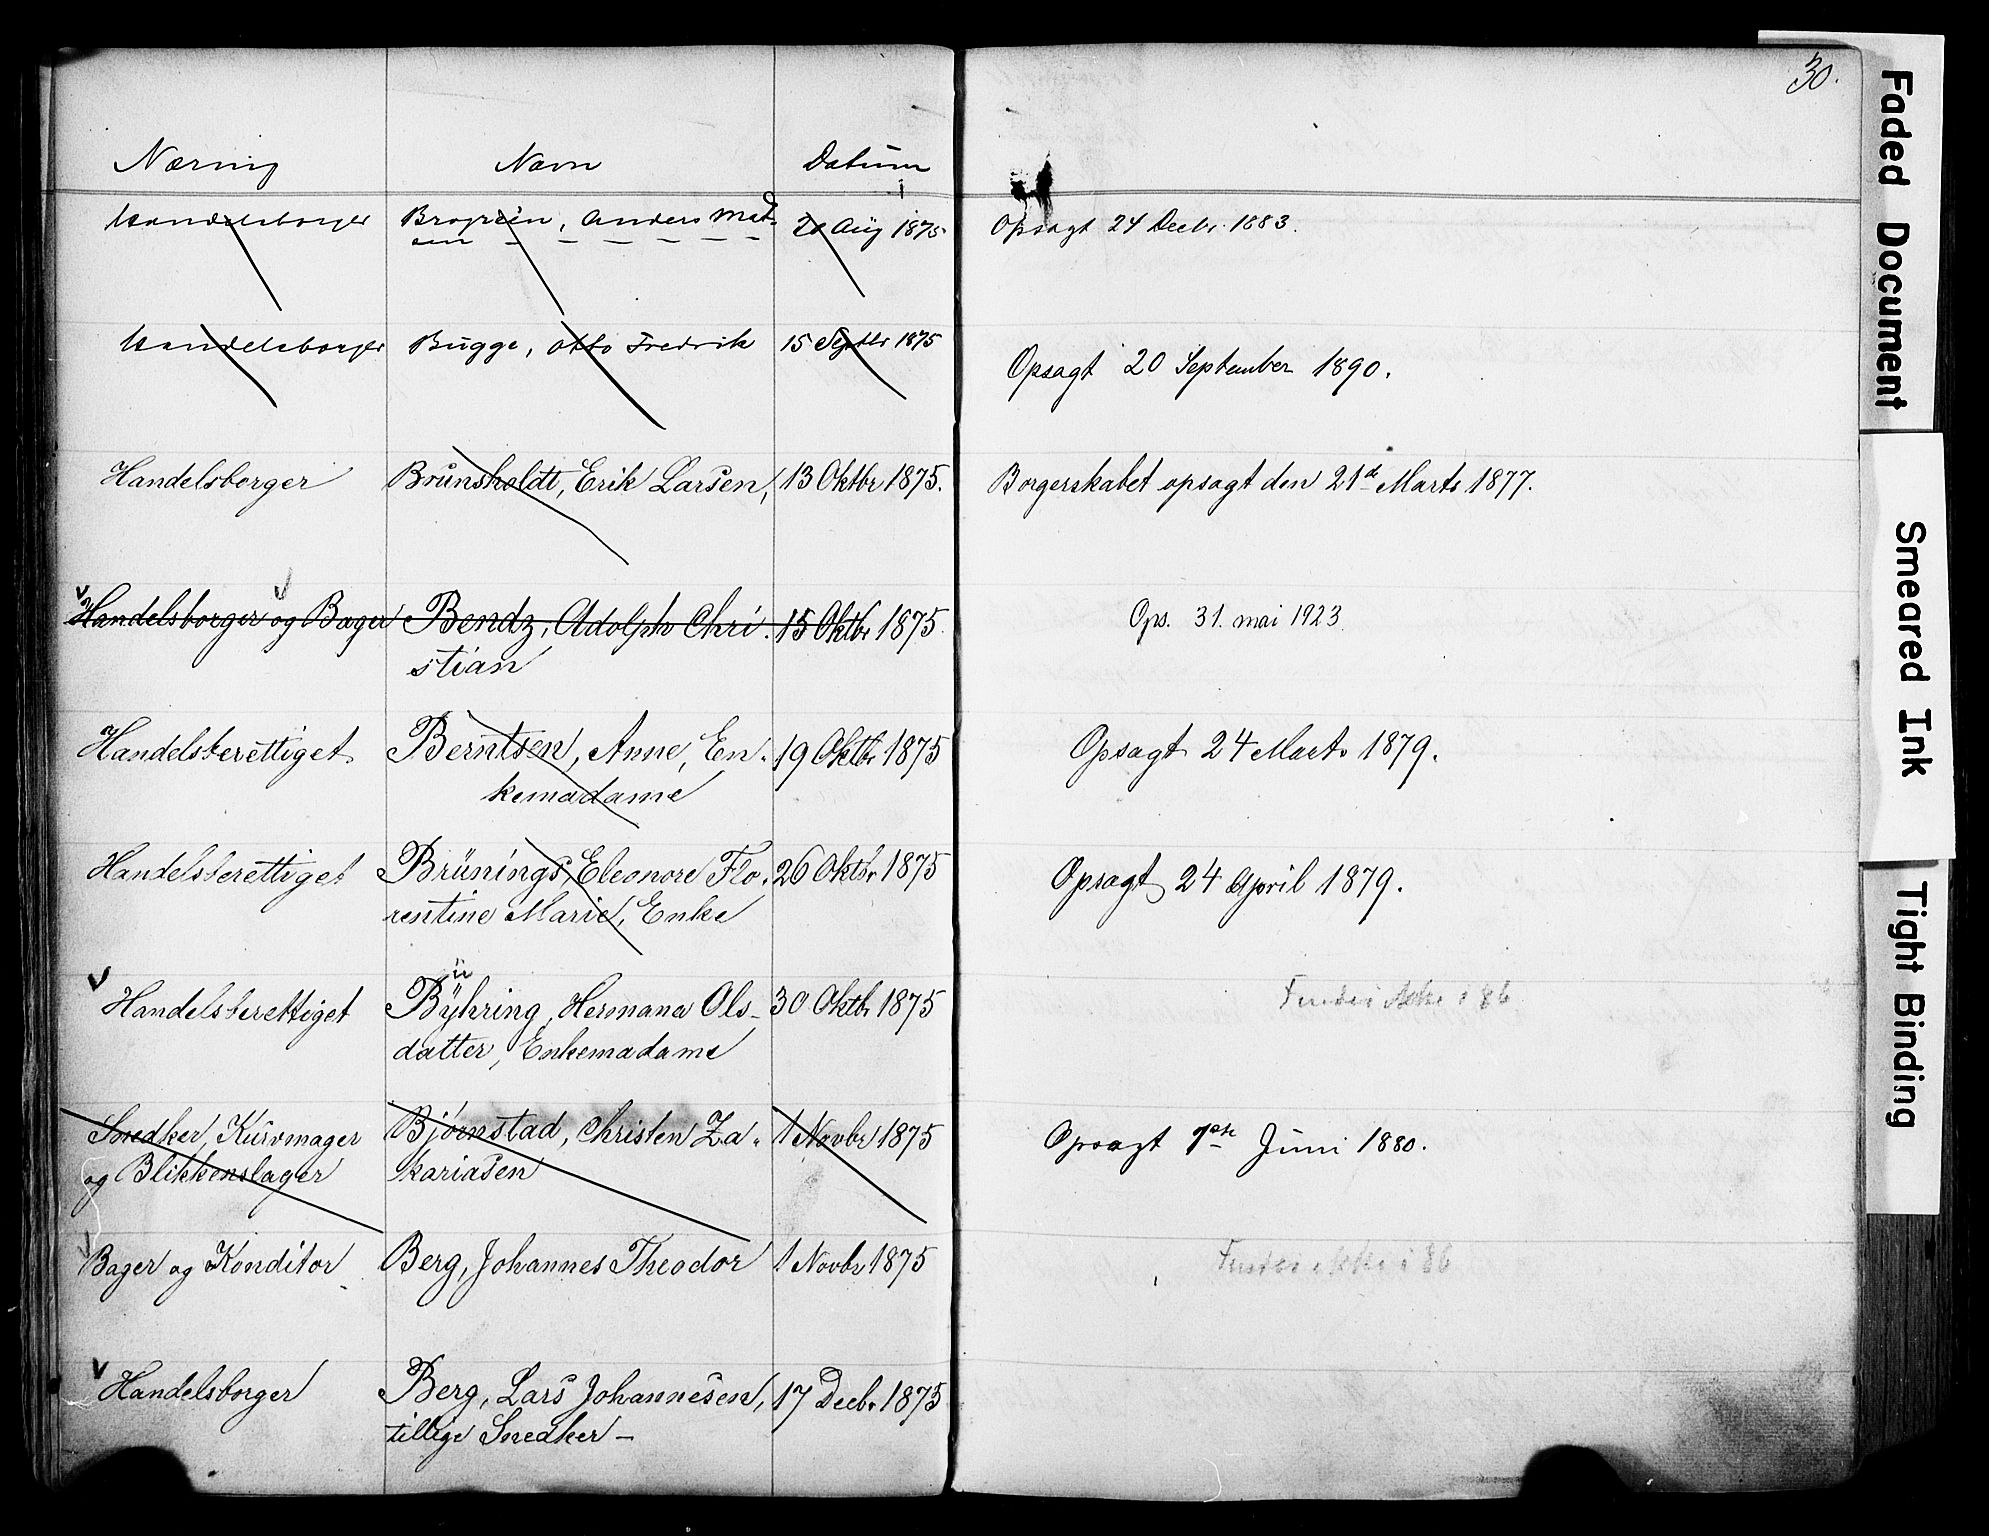 30.
Næring Navn Datum
Handelsborger Brogreen, Anders Mad- 20 Aug 1875 Opsagt 24 Decbr. 1883.
Handelsborger Bugge, Otto Fredrik 15 Septbr 1875
Opsagt 20 September 1890.
Handelsborger Brunsholdt, Erik Larsen, 13 Oktbr 1875. Borgerskabet opsagt den 21de Marts 1877.
Handelsborger og Bager Bendz, Adolph Chri- 15 Oktbr 1875. Ops. 31. mai 1923
stian
Handelsberettiget Berntsen, Anne, En- 19 Oktbr 1875 Opsagt 24 Marts 1879.
kemadame
Handelsberettiget Brünings, Eleonore Flo- 26 Oktbr 1875 Opsagt 24 April 1879.
rentine Marie, Enke
ü
Handelsberettiget Bÿhring, Hermana Ols- 30 Oktbr 1875 Findes ikke i 86
datter, Enkemadame
Snedker, Kurvmager Bjørnstad, Christen Za- 1 Novbr 1875 Opsagt Juni 1880.
og Blikkenslager kariasen
Bager og Konditor Berg, Johannes Theodor 1 Novbr 1875 Findes ikke i 86
Handelsborger Berg, Lars Johannesen, 17 Decbr 1875
tillige Snedker –
Faded Document
Smeared Ink
Tight Binding